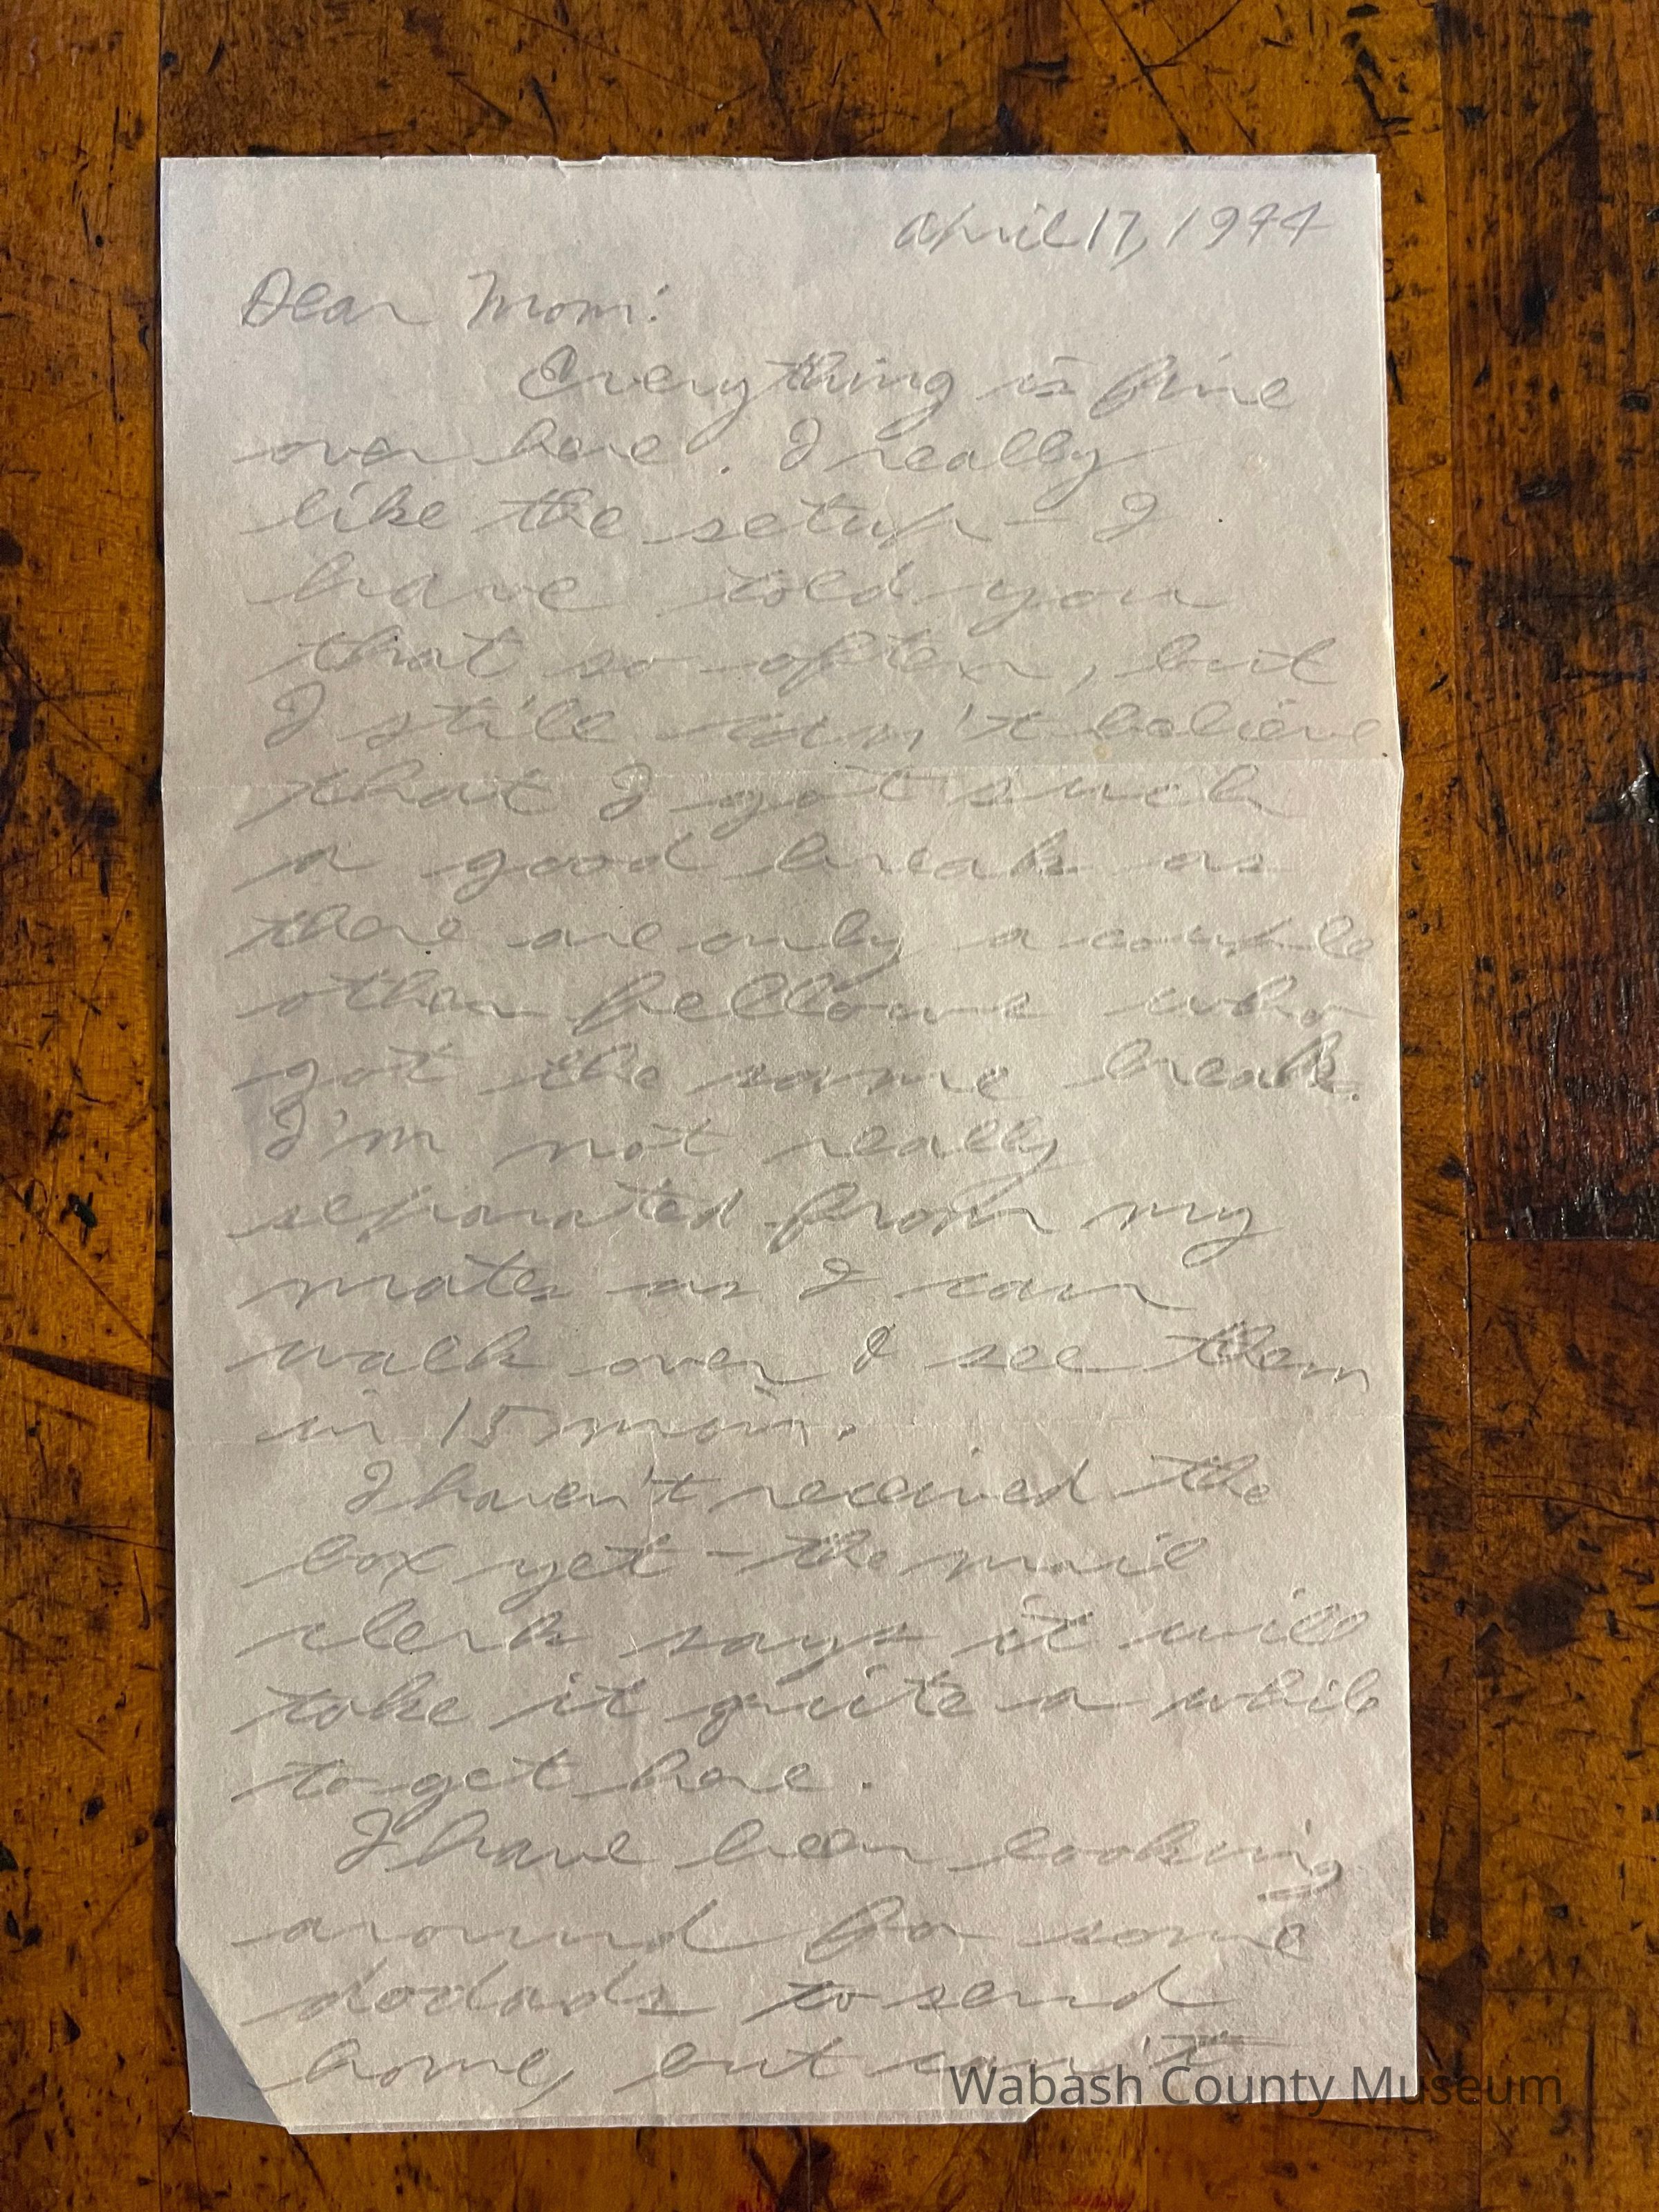 April 17, 1944
Dear Mom:
Everything is fine
over here. I really
like the setup - I
have told you
that so often, but
I still can't believe
that I got such
a good break as
there are only a couple
other fellows who
got the same break.
I'm not really
separated from my
mates as I can
walk over & see them
in 15 min.
I haven't received the
box yet - the mail
clerk says it will
take it quite a while
to get here.
I have been looking
around for some
dodads to send
home, but can't
Wabash County Museum